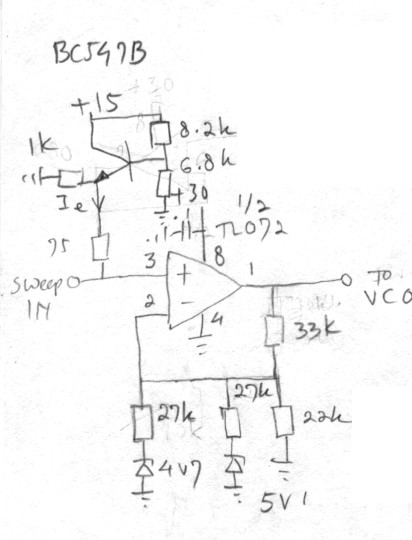 BC547B
+15
8.2k
1K
6.8k
Ie
+30
1/2
TL072
75
8
3
+
1
sweep
IN
TO
VCO
2
-
4
33K
27k
27k
22k
4V7
5V1